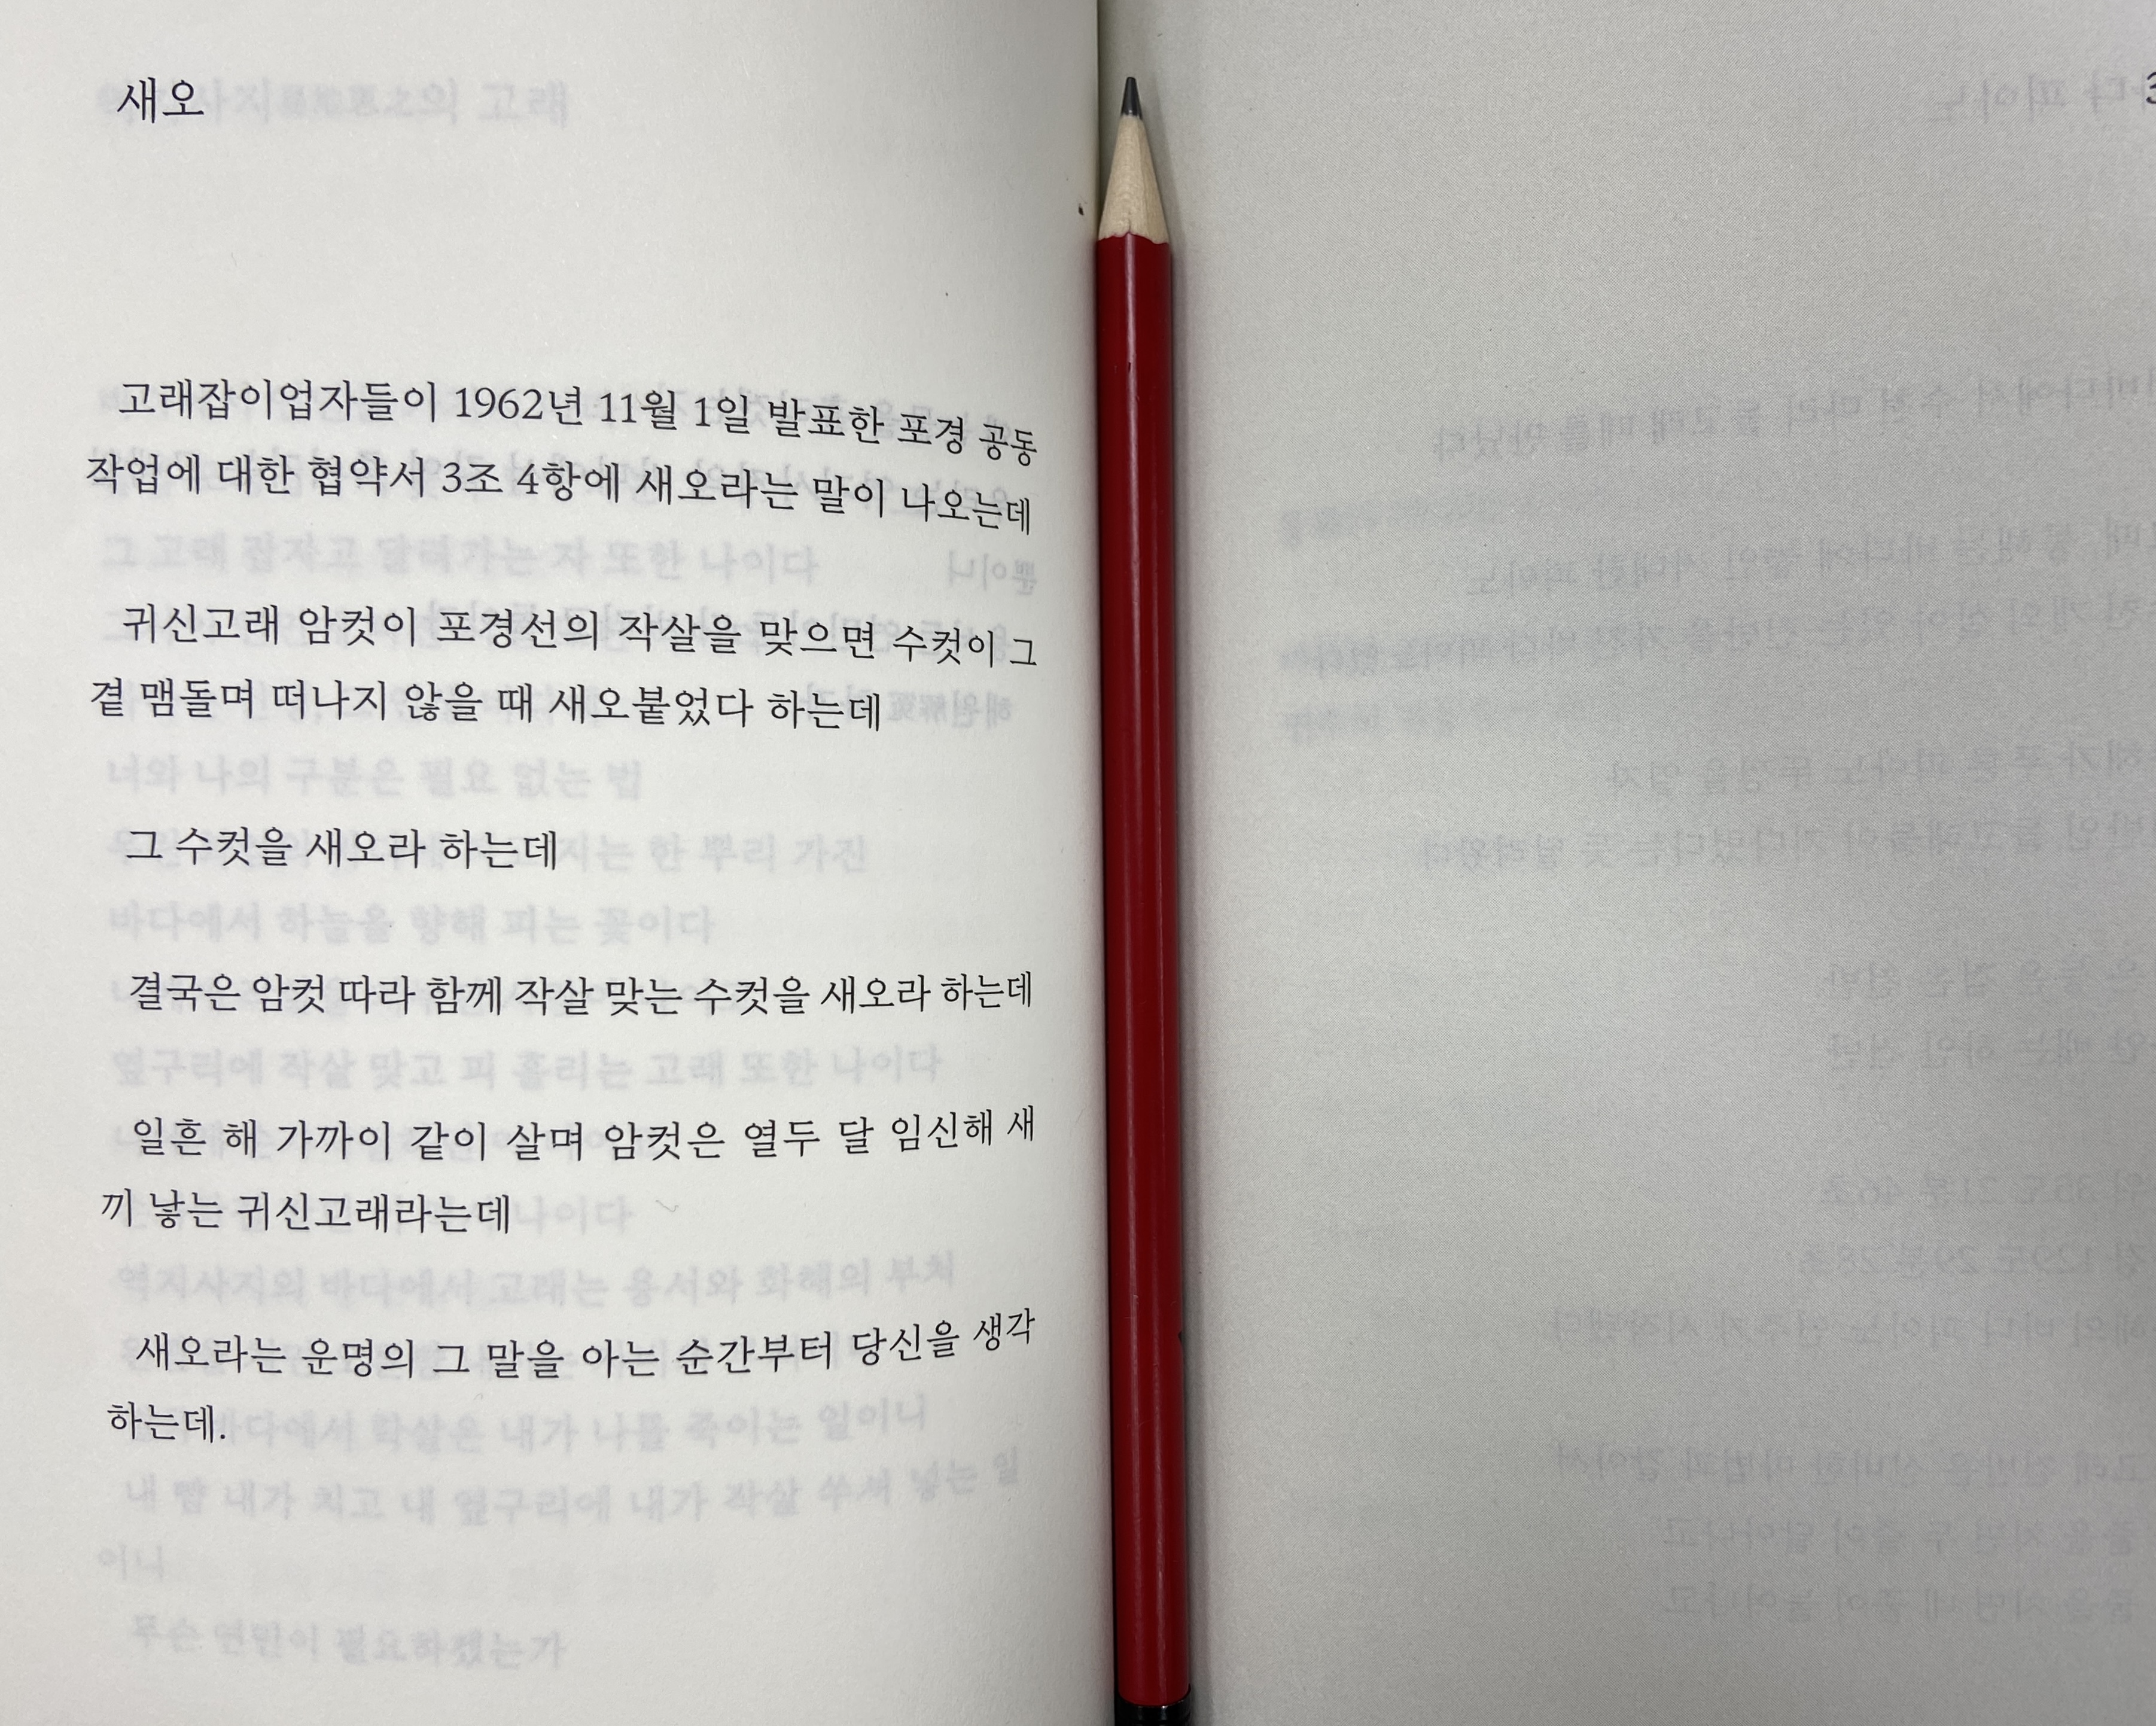 새오
고래잡이업자들이 1962년 11월 1일 발표한 포경 공동
작업에 대한 협약서 3조 4항에 새오라는 말이 나오는데
귀신고래 암컷이 포경선의 작살을 맞으면 수컷이 그
곁 맴돌며 떠나지 않을 때 새오붙었다 하는데
그 수컷을 새오라 하는데
결국은 암컷 따라 함께 작살 맞는 수컷을 새오라 하는데
일흔 해 가까이 같이 살며 암컷은 열두 달 임신해 새
끼 낳는 귀신고래라는데
새오라는 운명의 그 말을 아는 순간부터 당신을 생각
하는데.